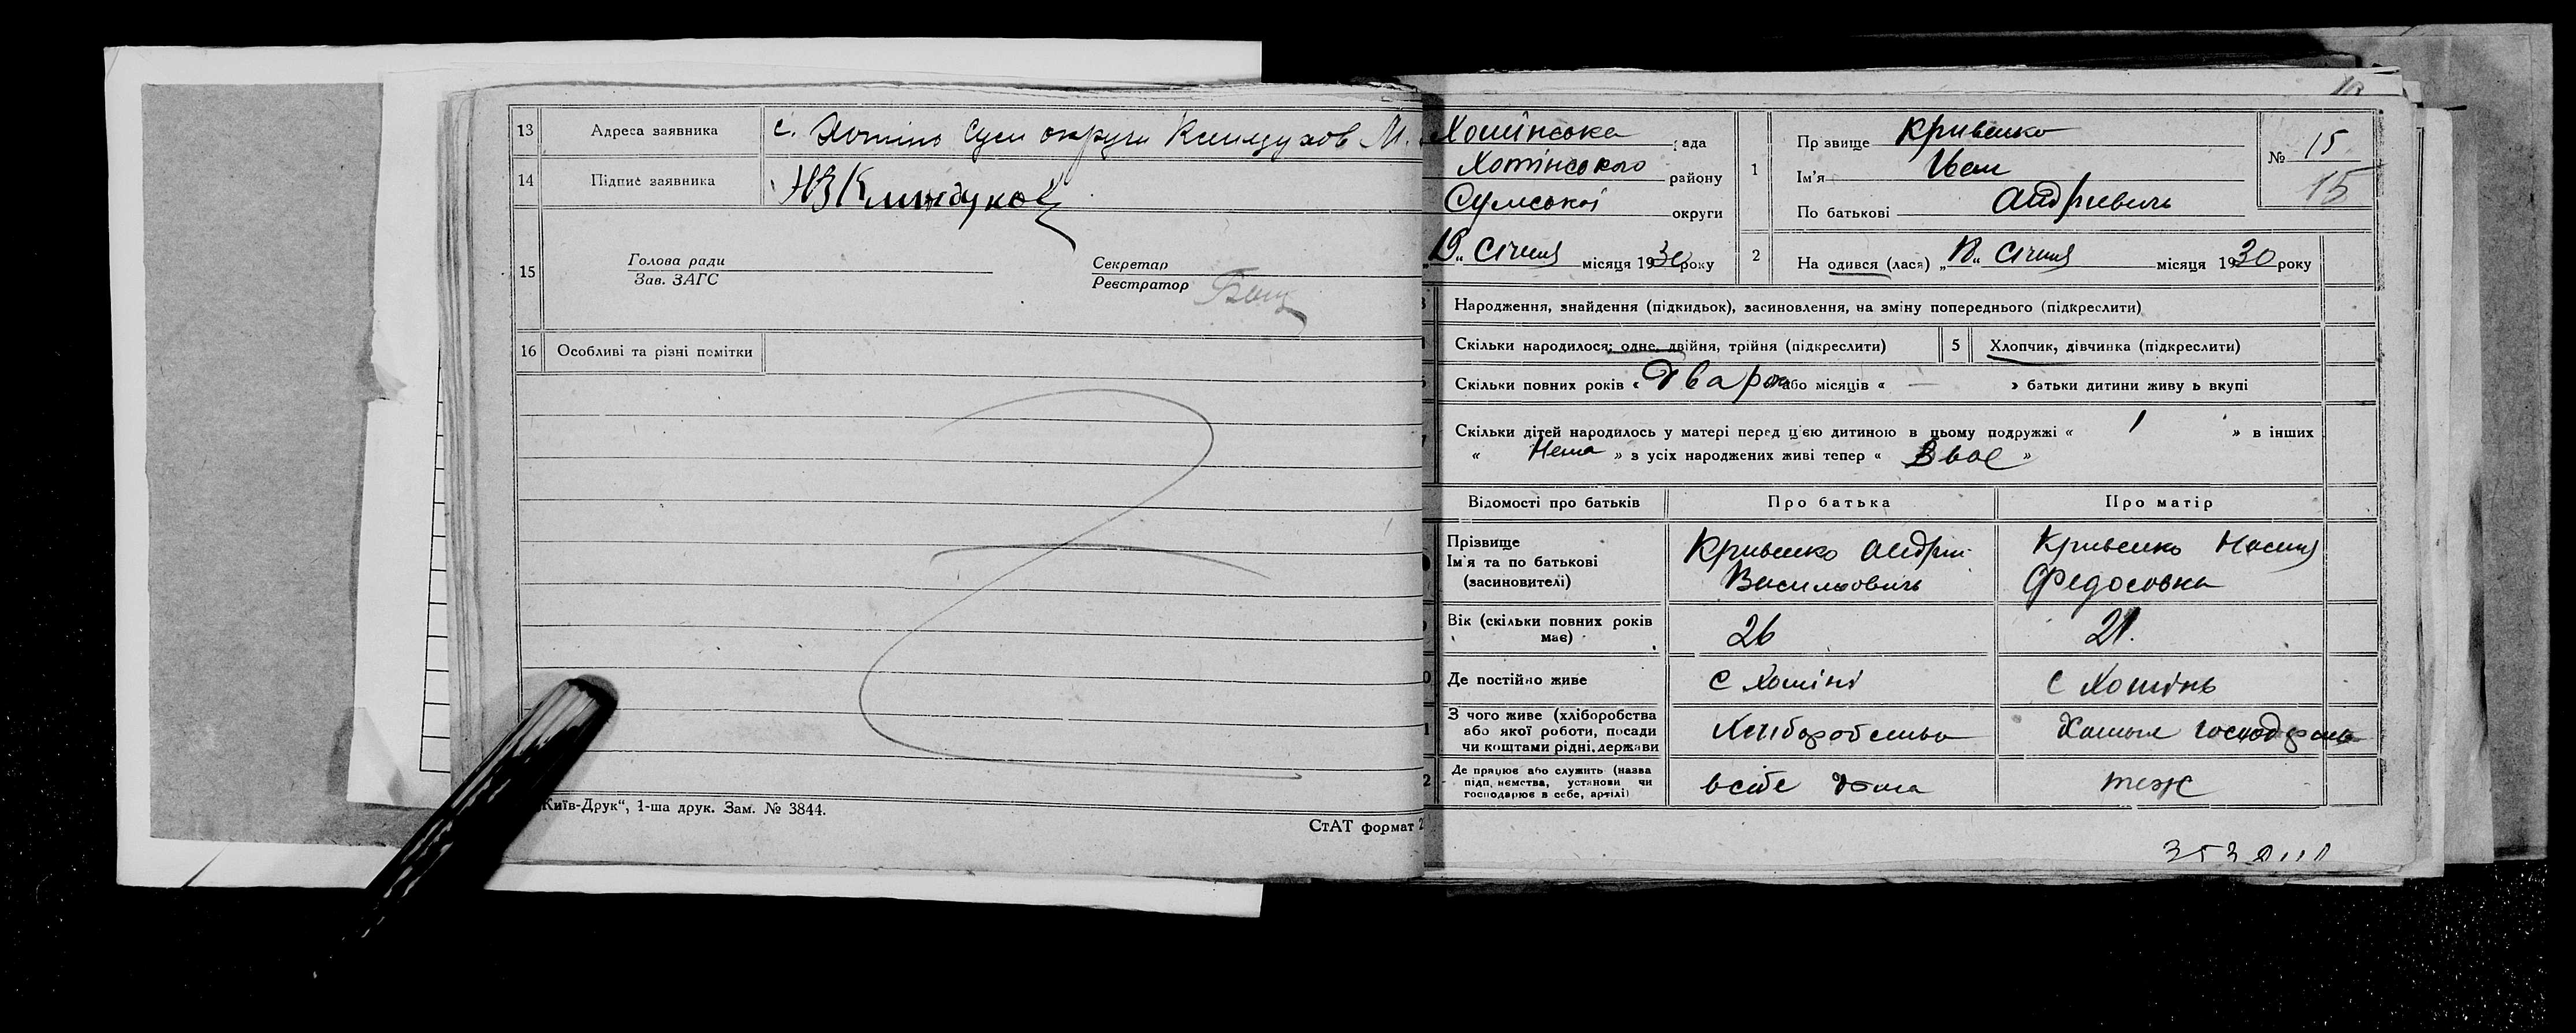 13 Адреса заявника с. Хотінь Сум округи Климдухов М.
14 Підпис заявника
15 Голова ради
Зав. ЗАГС
Секретар
Реєстратор
16 Особливі та різні помітки
Київ-Друк“, 1-ша друк. Зам. № 3844.
СтАТ формат 2
Хотінська рада
Хотінського району
Сумської округи
„19„ січня місяця 1930 року
1 Прізвище Кривенко
Ім'я Иван
По батькові Андриевичь
№ 15
15
2 Народився (лася) „18„ січня місяця 1930 року
Народження, знайдення (підкидьок), засиновлення, на зміну попереднього (підкреслити)
Скільки народилося: одне, двійня, трійня (підкреслити)
5 Хлопчик, дівчинка (підкреслити)
Скільки повних років « два ро » або місяців « — » батьки дитини живуть вкупі
Скільки дітей народилось у матері перед цією дитиною в цьому подружжі « 1 » в інших
« Нема » з усіх народжених живі тепер « Двое »
Відомості про батьків Про батька Про матір
Прізвище
Ім'я та по батькові
(засиновителі)
Кривенко Андрий
Васильовичь
Кривенко Настя
Федосовна
Вік (скільки повних років
має)
26
21.
Де постійно живе с Хотіні с Хотінь
З чого живе (хліборобства
або якої роботи, посади
чи коштами рідні, держави
Хлиборобство
Хатьня господарка
Де працює або служить (назва
підприємства, установи чи
господарює в себе, артілі)
в себе дома
теж